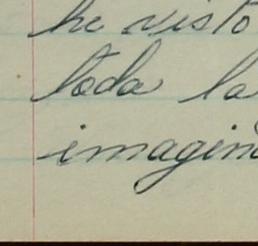 he visto
toda la
imagin